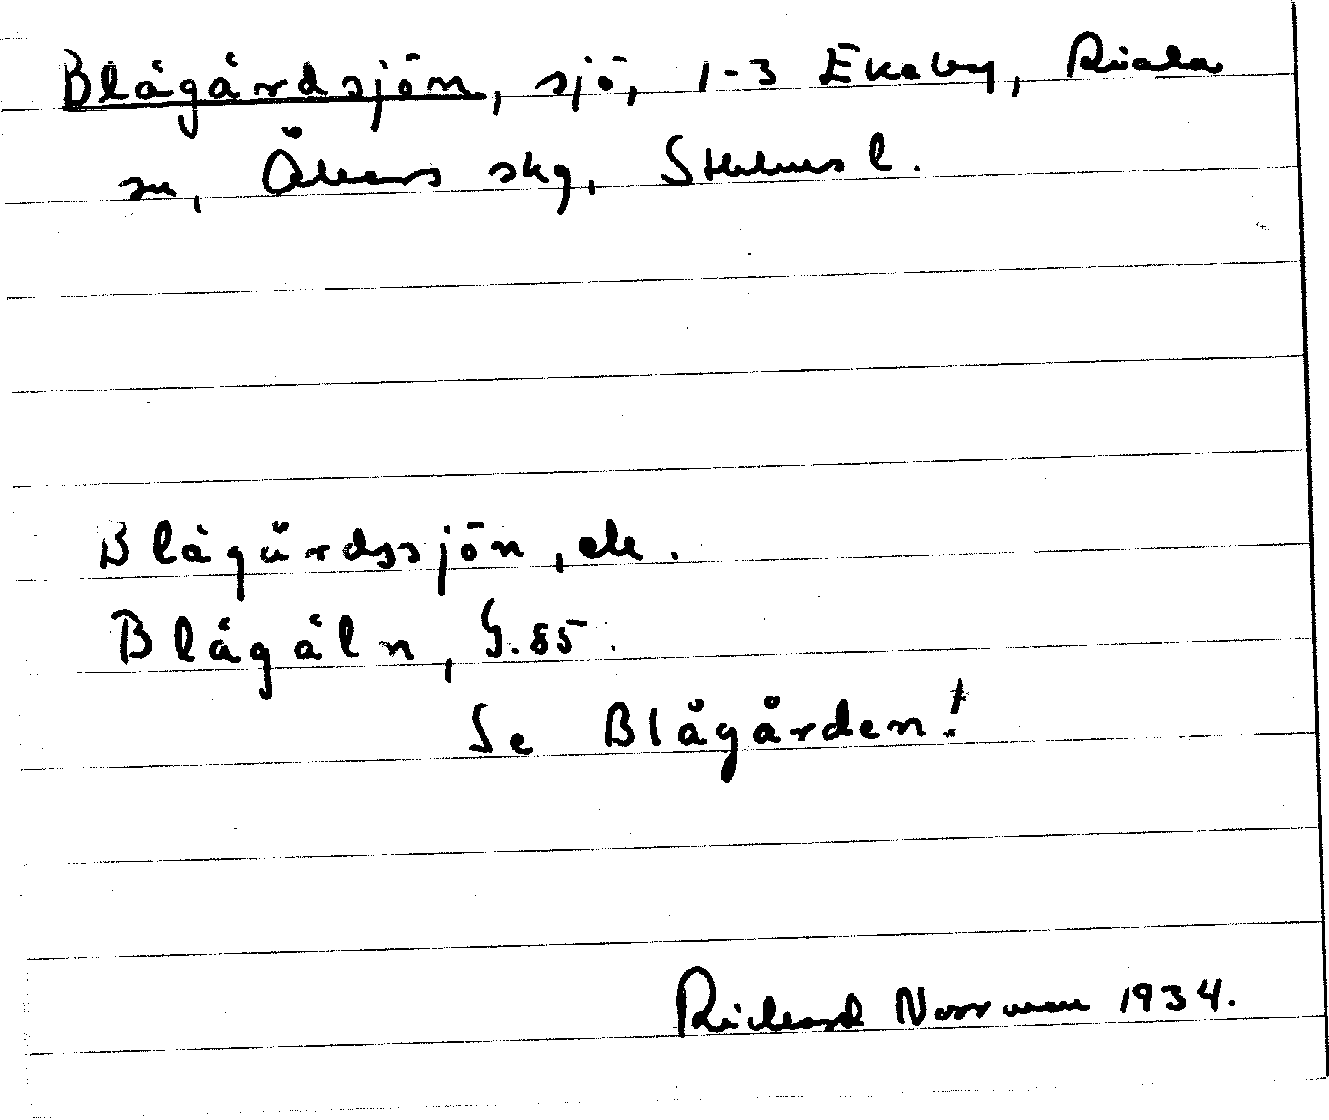 Blågårdsjön, sjö, 1-3 Ekeby, Riala
sn, Åkers skg, Sthlms l.
Blågårdssjön, ek.
Blågåln, G.85.
Se Blågården!
Richard Norrman 1934.